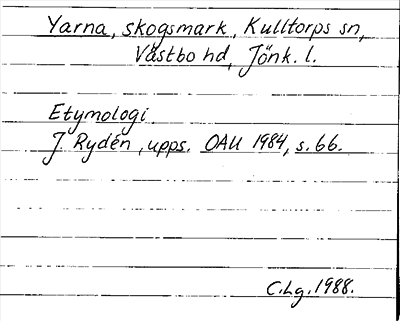 Yarna, skogsmark, Kulltorps sn,
Västbo hd, Jönk. l.
Etymologi
J. Rydén, upps. OAU 1984, s. 66.
C.Lg. 1988.